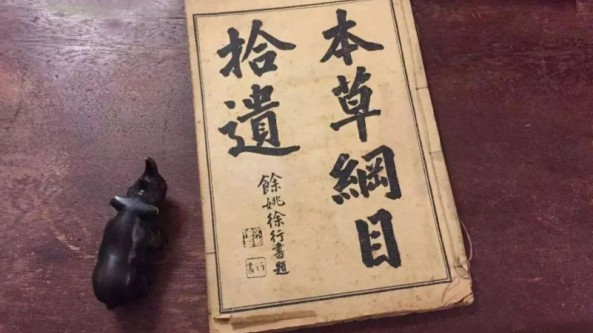 本草綱目
拾遺
餘姚徐行書題